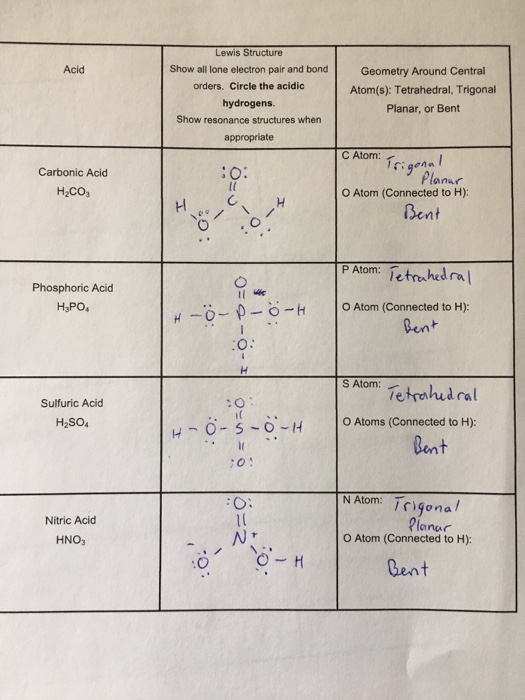 Acid
Lewis Structure
Show all lone electron pair and bond
orders. Circle the acidic
hydrogens.
Show resonance structures when
appropriate
Geometry Around Central
Atom(s): Tetrahedral, Trigonal
Planar, or Bent
Carbonic Acid
H₂CO₃
:O:
C
H
H
O
O
C Atom: Trigonal
Planar
O Atom (Connected to H):
Bent
Phosphoric Acid
H₃PO₄
O
H - O - P - O - H
:O:
H
P Atom: Tetrahedral
O Atom (Connected to H):
Bent
Sulfuric Acid
H₂SO₄
:O:
H - O - S - O - H
:O:
S Atom: Tetrahedral
O Atoms (Connected to H):
Bent
Nitric Acid
HNO₃
:O:
N+
- :O O - H
N Atom: Trigonal
Planar
O Atom (Connected to H):
Bent